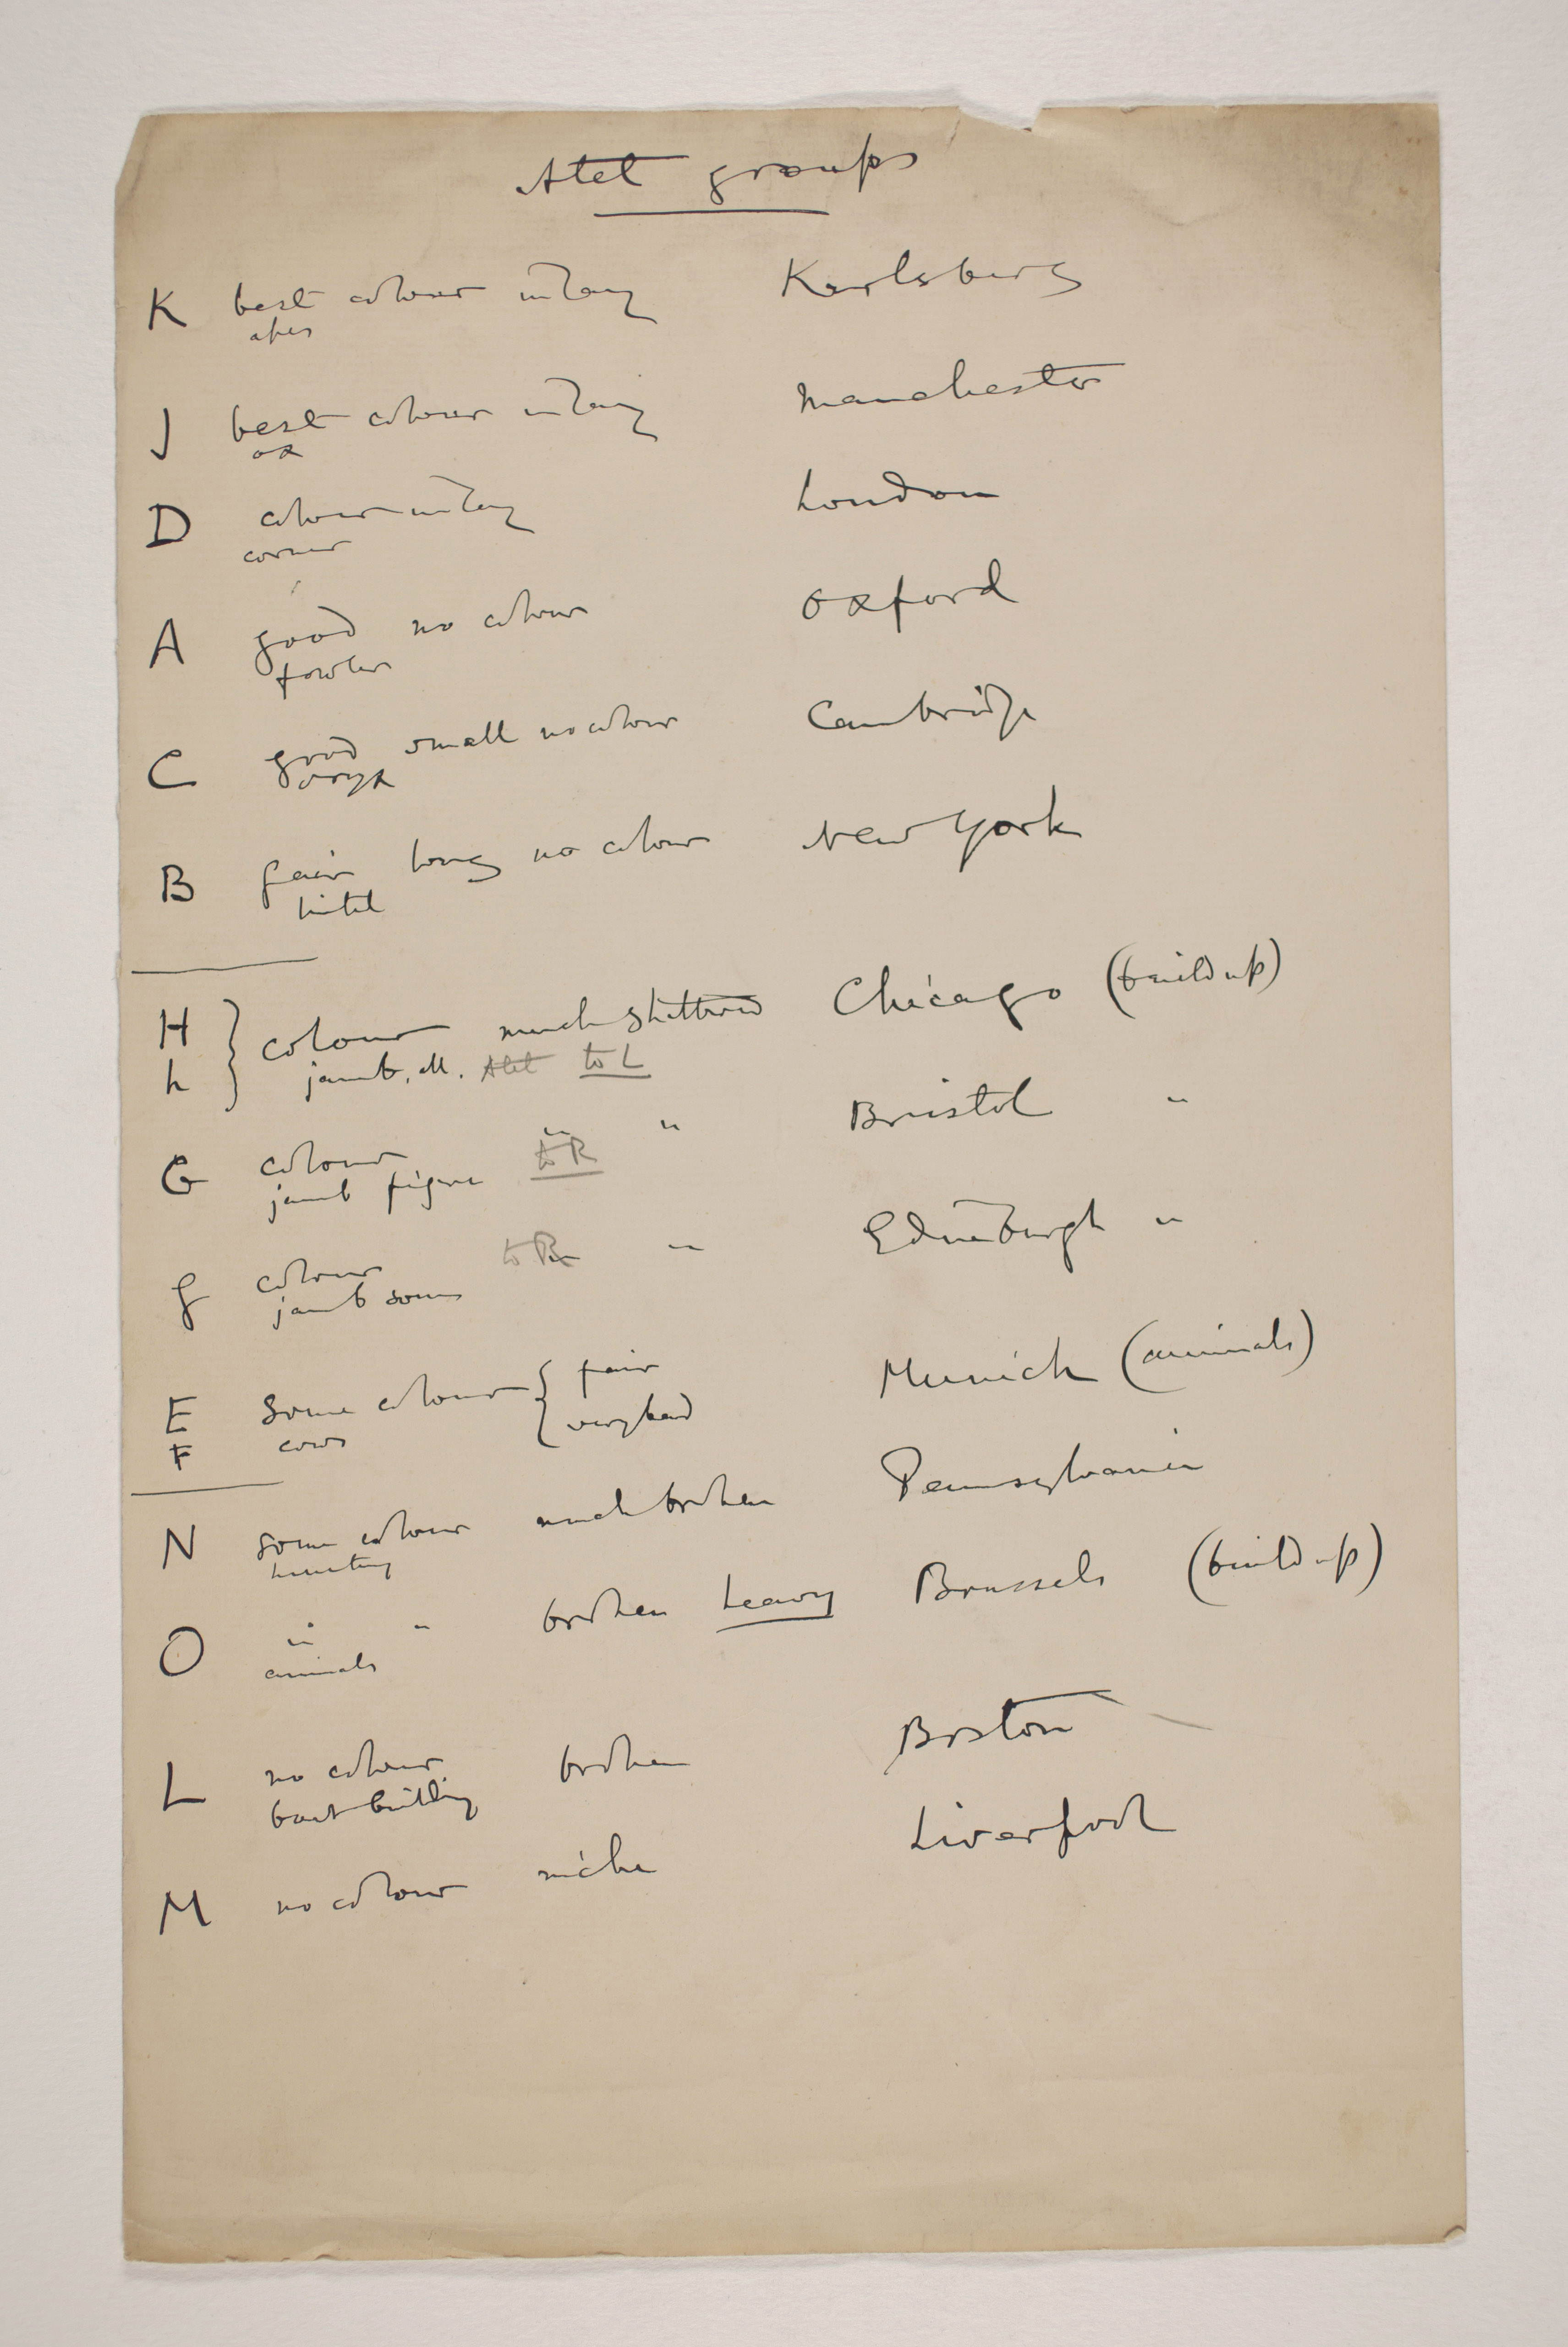 Atet groups
K best colour inlay Karlsberg
apes
J best colour inlay Manchester
ox
D colour inlay London
corner
A good no colour Oxford
fowler
C good small no colour Cambridge
oryx
B fair long no colour New York
lintel
H h } colour much shattered Chicago (build up)
jamb, M. Atet to L
G colour " " Bristol "
jamb figure to R
g colour to R " Edinburgh "
jamb sons
E some colour { fair Munich (animals)
F cows { very bad
N some colour much broken Pennsylvania
hunting
O " " broken heavy Brussels (build up)
animals
L no colour broken Boston
boat building
M no colour niche Liverpool